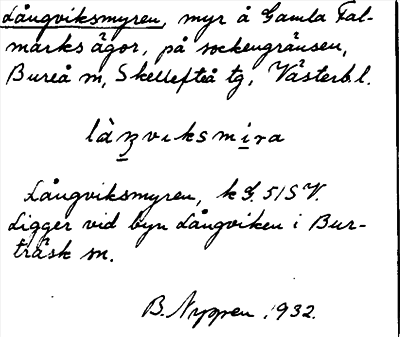 Långviksmyren, myr å Gamla Fal-
marks ägor, på sockengränsen,
Bureå m, Skellefteå tg, Västerb.l.
Långviksmyren, k G. 51 S V.
Ligger vid byn Långviken i Bur-
träsk sn.
B. Nygren 1932.